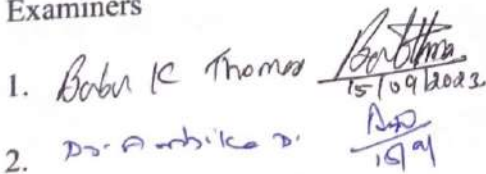 Examiners
1. Babu K Thomas
15/09/2023
2. Dr. Ambika D.
15/9